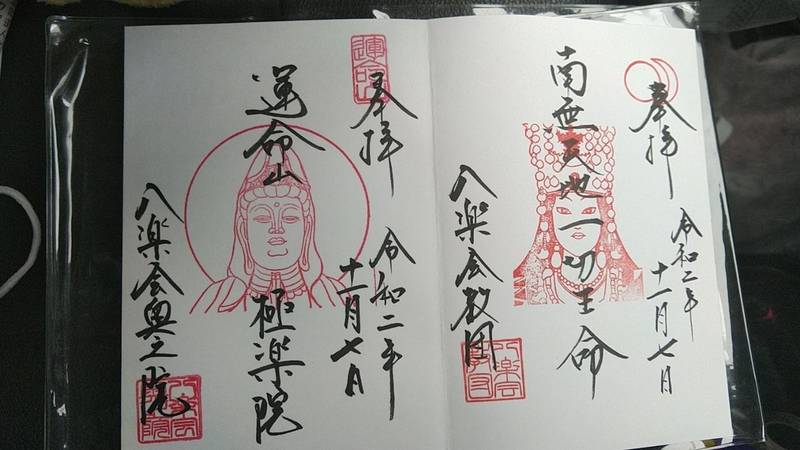 奉拝
令和二年
十一月七日
南無天地一切生命
八楽会教団
奉拝
令和二年
十一月七日
運命山
極楽院
八楽会奥之院
運命山